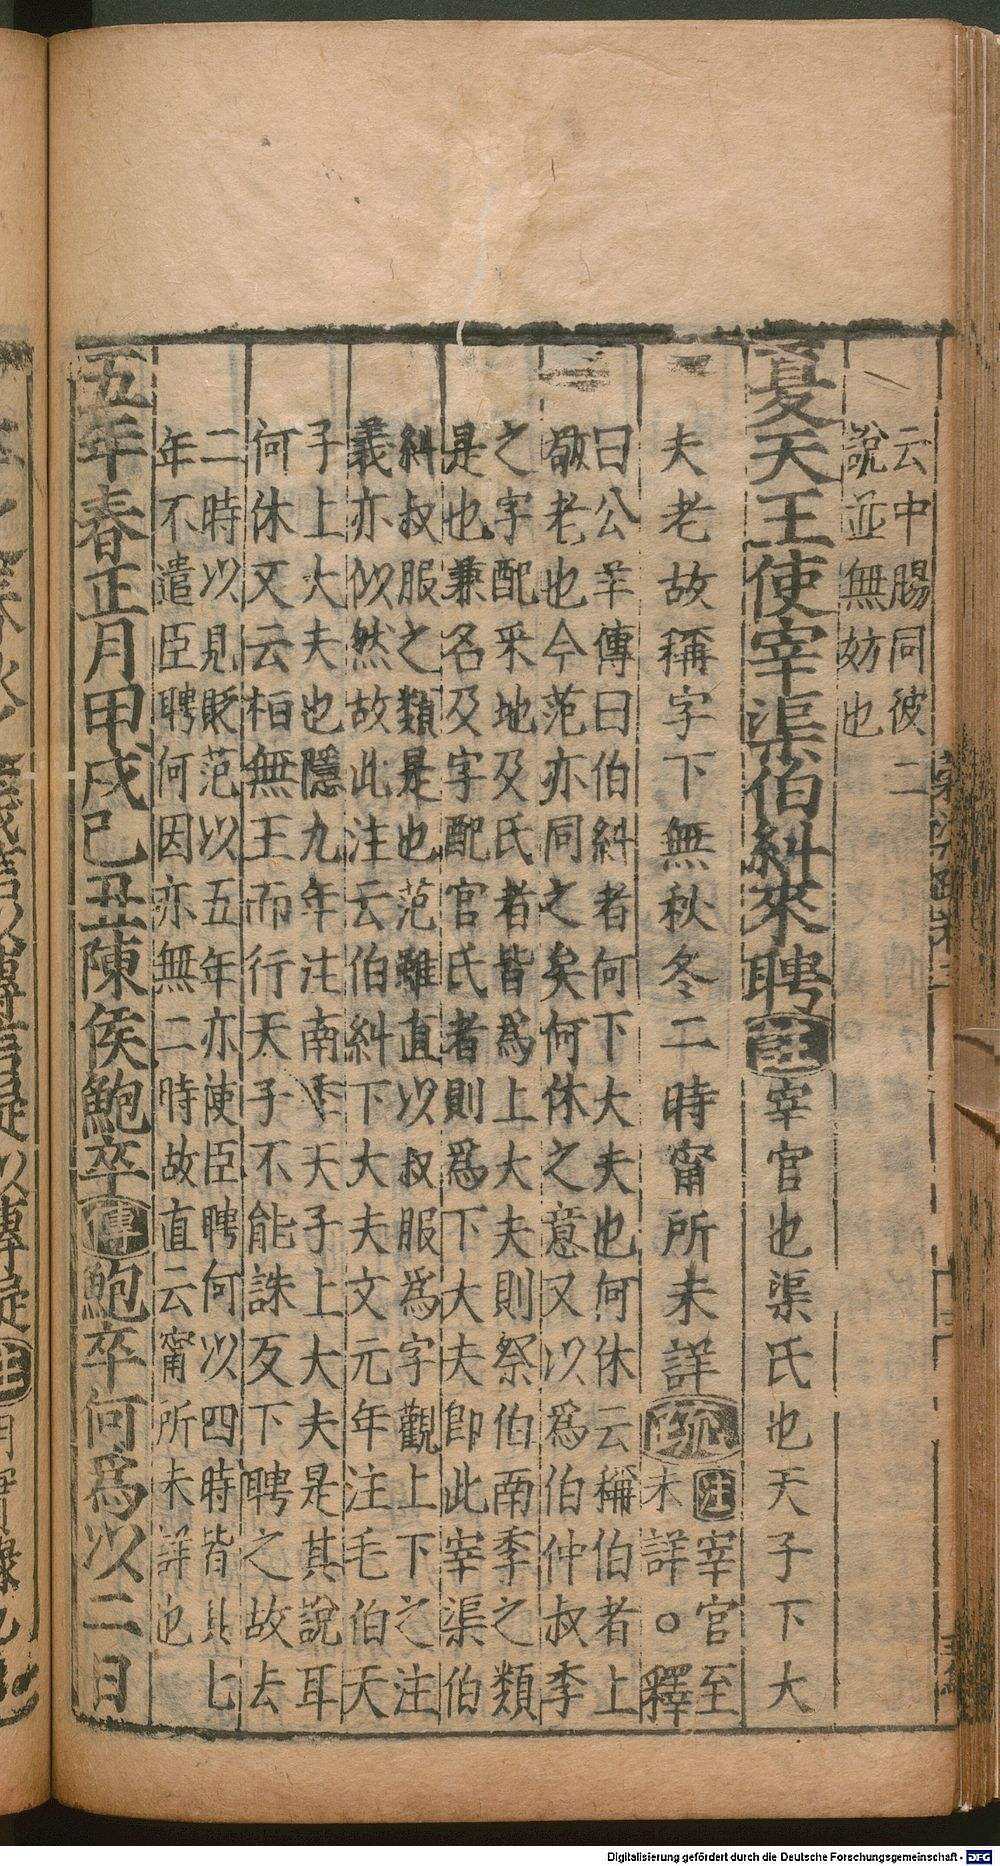 云中賜同彼二
說並無妨也
夏天王使宰渠伯糾來聘注宰官也渠氏也天子下大
夫老故稱字下無秋冬二時甯所未詳疏
注宰官至
未詳○釋
曰公羊傳曰伯糾者何下大夫也何休云稱伯者上
敬老也今范亦同之矣何休之意又以為伯仲叔季
之字配采地及氏者皆為上大夫則祭伯南季之類
是也兼名及字配官氏者則為下大夫即此宰渠伯
糾叔服之類是也范雖直以叔服為字觀上下之注
義亦似然故此注云伯糾下大夫文元年注毛伯天
子上大夫也隱九年注南季天子上大夫是其說耳
何休又云桓無王而行天子不能誅反下聘之故去
二時以見貶范以五年亦使臣聘何以四時皆具七
年不遣臣聘何因亦無二時故直云甯所未詳也
五年春正月甲戌己丑陳侯鮑卒傳鮑卒何為以二日
Digitalisierung gefördert durch die Deutsche Forschungsgemeinschaft - DFG